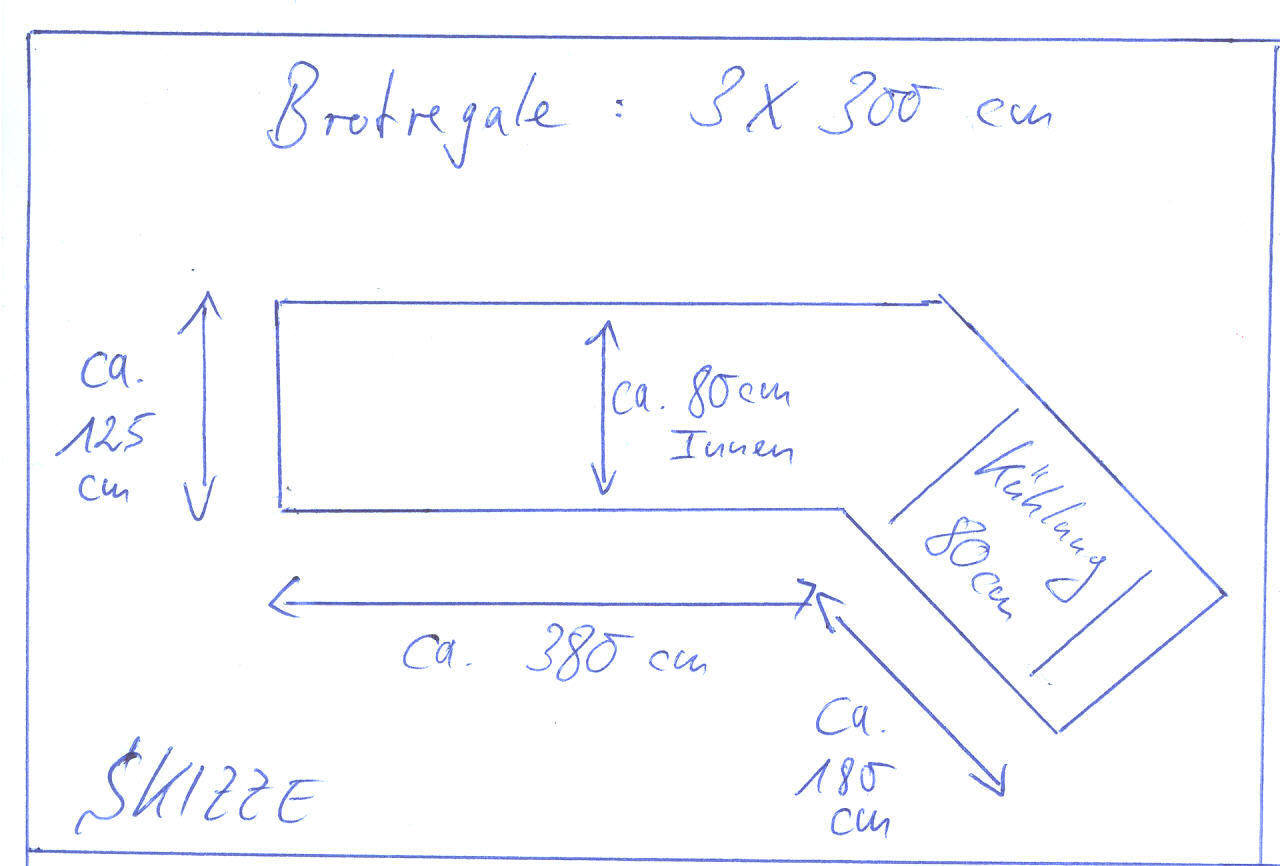 Brotregale : 3 X 300 cm
ca.
125
cm
ca. 80cm
Innen
Kühlung
80cm
ca. 380 cm
ca.
180
cm
SKIZZE